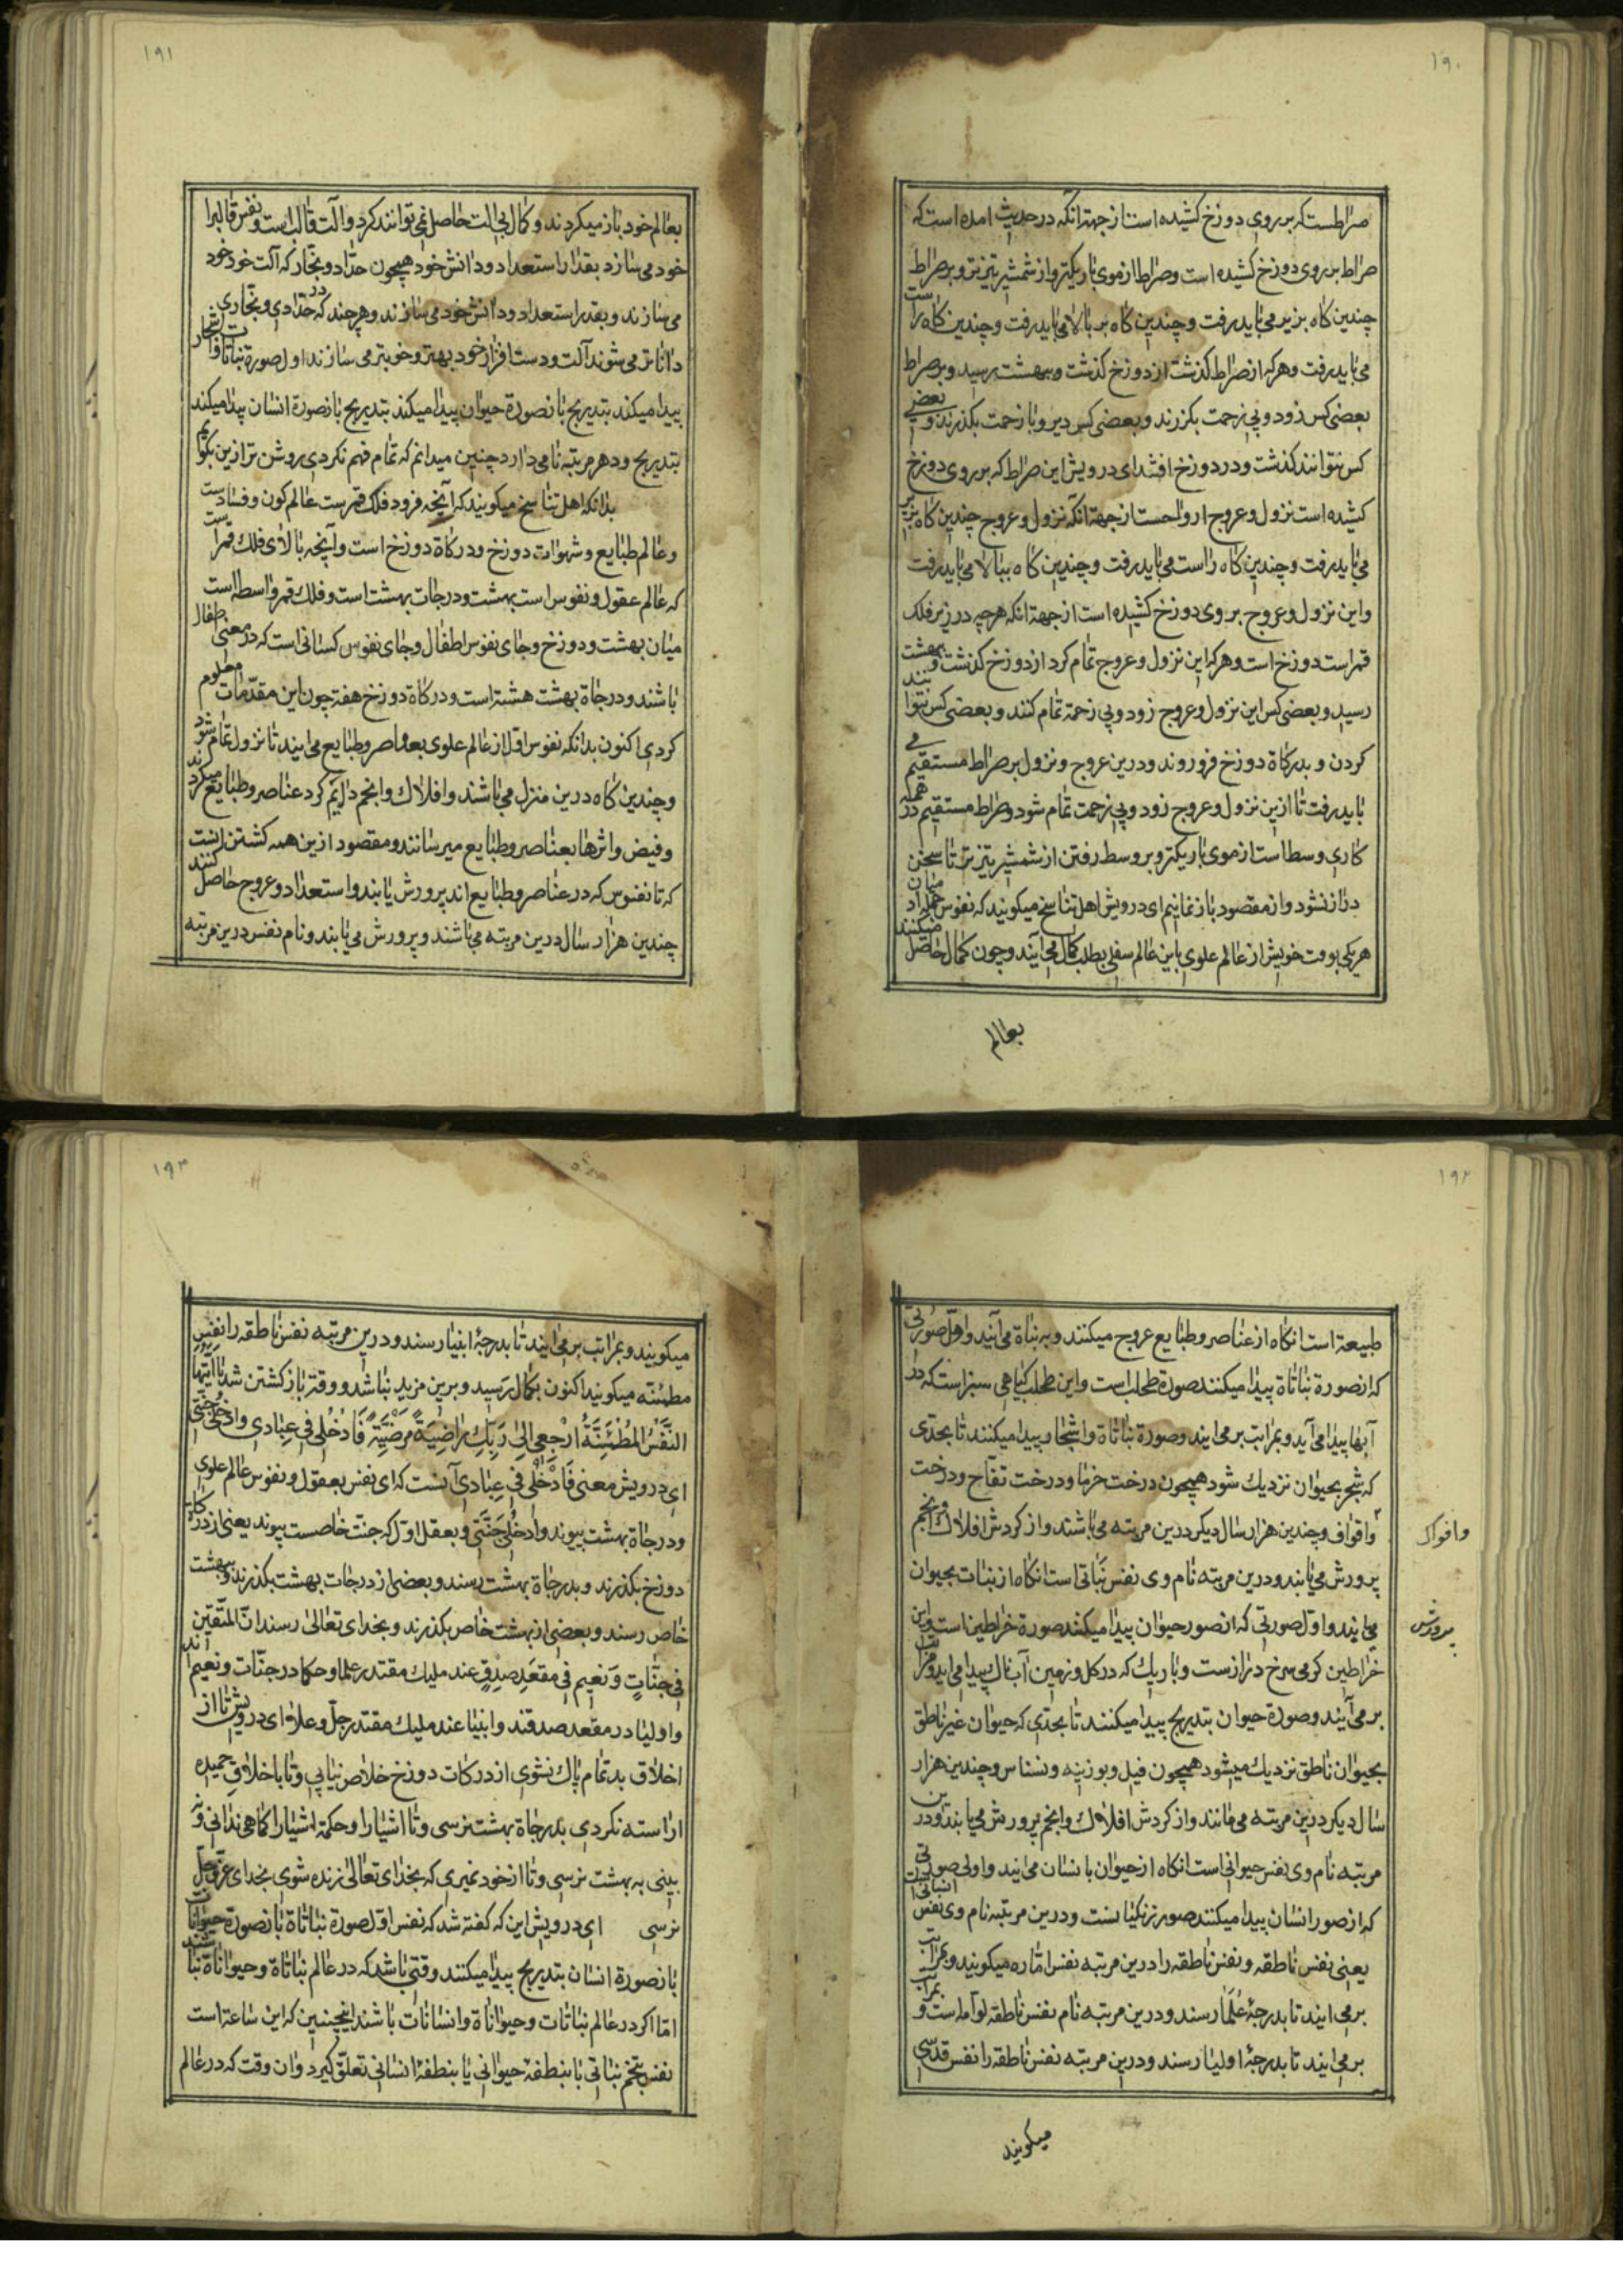 ۱۹۰
صراطست که بر روی دوزخ کشیده است از جهة انکه در حدیث امده است که
صراط بر روی دوزخ کشیده است و صراط از موی باریکتر و از شمشیر تیزتر و بر صراط
چندین کاه بزیر می باید رفت و چندین کاه بر بالا می باید رفت و چندین کاه راست
می باید رفت و هر که از صراط کذشت از دوزخ کذشت و ببهشت رسید و بر صراط
بعضی کس زود و بی زحمت بکزرند و بعضی کس دیر و با زحمت بکذرند و بعضی
کس نتوانند کذشت و در دوزخ افتند ای درویش این صراط که بر روی دوزخ
کشیده است نزول و عروج ارواحست از جهة انکه نزول و عروج چندین کاه بزیر
می باید رفت و چندین کاه راست می باید رفت و چندین کاه ببالا می باید رفت
و این نزول و عروج بر روی دوزخ کشیده است از جهة انکه هرچه در زیر فلک
قمر است دوزخ است و هر که این نزول و عروج تمام کرد از دوزخ کذشت و ببهشت
رسید و بعضی کس این نزول و عروج زود و بی زحمة تمام کنند و بعضی کس نتوانند
کردن و بدرکاة دوزخ فرو روند و درین عروج و نزول بر صراط مستقیم می
باید رفت تا ازین نزول و عروج زود و بی زحمت تمام شود و صراط مستقیم در همه
کاری وسط است از موی باریکتر و بر وسط رفتن از شمشیر تیزتر تا سخن
دراز نشود و از مقصود باز نمانیم ای درویش اهل تناسخ میکویند که نفوس جمله ادمیان
هر یکی بوقت خویش از عالم علوی باین عالم سفلی بطلب کمال می آیند و چون کمال حاصل میکنند
بعالم
۱۹۱
بعالم خود باز میکردند و کمال بی الت حاصل نمی توانند کرد و الت قالب است و نفس قالبرا
خود می سازد بقدر استعداد و دانش خود همچون حداد و نجار که آلت خود خود
می سازند و بقدر استعداد و دانش خود می سازند و هرچند که در حدادی و نجاری
داناتر می شوند آلت و دست افزار خود بهتر و خوبتر می سازند اول صورة نباتات و اشجار
پیدا میکند بتدریج باز صورة حیوان پیدا میکند بتدریج باز صورة انسان پیدا میکند
بتدریج و در هر مرتبه نامی دارد چنین میدانم که تمام فهم نکردی روشن تر ازین بکویم
بدانکه اهل تناسخ میکویند که آنچه فرود فلک قمرست عالم کون و فسادست
و عالم طبایع و شهوات دوزخ و درکاة دوزخ است و آنچه بالای فلک قمرست
که عالم عقول و نفوس است بهشت و درجات بهشت است و فلک قمر واسطه است
میان بهشت و دوزخ و جای نفوس اطفال و جای نفوس کسانی است که در معنی اطفال
باشند و درجاة بهشت هشت است و درکاة دوزخ هفت چون این مقدمات معلوم
کردی اکنون بدانکه نفوس اول از عالم علوی بعناصر و طبایع می ایند تا نزول تمام شود
و چندین کاه درین منزل می باشند و افلاک و انجم دایم کرد عناصر و طبایع میکردند
و فیض و اثرها بعناصر و طبایع میرسانند و مقصود ازین همه کشتن انست
که تا نفوس که در عناصر و طبایع اند پرورش یابند و استعداد و عروج حاصل کنند
چندین هزار سال درین مرتبه می باشند و پرورش می یابند و نام نفس درین مرتبه
۱۹۲
طبیعة است انکاه از عناصر و طبایع عروج میکنند و به نباة می آیند و اول صورتی
که از صورة نباتاة پیدا میکنند صورة طحلب است و این طحلب کیاهی سبز است که در
آبها پیدا می آید و بمراتب بر می ایند و صورة نباتاة و اشجار پیدا میکنند تا بحدی
که شجر بحیوان نزدیک شود همچون درخت خرما و درخت تفاح و درخت
واقواق و چندین هزار سال دیکر درین مرتبه می باشند و از کردش افلاک و انجم
وافواک
پرورش می یابند و درین مرتبه نام وی نفس نباتی است انکاه از نبات بحیوان
می ایند و اول صورتی که از صور حیوان پیدا میکنند صورة خراطین است و این
پرورش
خراطین کرمی سرخ درازست و باریک که در کل و زمین آب ناک پیدا می اید و بمراتب
بر می آیند و صورة حیوان بتدریج پیدا میکنند تا بحدی که حیوان غیر ناطق
بحیوان ناطق نزدیک میشود همچون فیل و بوزینه و نسناس و چندین هزار
سال دیکر درین مرتبه می مانند و از کردش افلاک و انجم پرورش می یابند و درین
مرتبه نام وی نفس حیوانی است انکاه از حیوان بانسان می ایند و اولی صورتی
که از صور انسان پیدا میکنند صور زنکیانست و درین مرتبه نام وی نفس انسانی است
یعنی نفس ناطقه و نفس ناطقه را درین مرتبه نفس اماره میکویند و بمراتب
بر می ایند تا بدرجهٔ علما رسند و درین مرتبه نام نفس ناطقه لوامه است و بمراتب
بر می ایند تا بدرجهٔ اولیا رسند و درین مرتبه نفس ناطقه را نفس قدسی
میکویند
۱۹۳
میکویند و بمراتب بر می ایند تا بدرجهٔ انبیا رسند و درین مرتبه نفس ناطقه را نفس
مطمئنه میکویند اکنون بکمال رسید و برین مزید نباشد و وقت باز کشتن شد یا ایتها
النفس المطمئنة ارجعی الی ربک راضیة مرضیة فادخلی فی عبادی وادخلی جنتی
ای درویش معنی فادخلی فی عبادی آنست که ای نفس بعقول و نفوس عالم علوی
و درجاة بهشت پیوند وادخلی جنتی و بعقل اول که جنت خاصست پیوند یعنی از درکات
دوزخ بکذرند و بدرجاة بهشت رسند و بعضی از درجات بهشت بکذرند و ببهشت
خاص رسند و بعضی از بهشت خاص بکذرند و بخدای تعالی رسند ان المتقین
فی جنات و نعیم فی مقعد صدق عند ملیک مقتدر علما و حکما در جنات و نعیم اند
و اولیا در مقعد صدقند و انبیا عند ملیک مقتدر جل و علا ای درویش تا از
اخلاق بد تمام پاک نشوی از درکات دوزخ خلاص نیابی و تا باخلاق حمیده
اراسته نکردی بدرجاة بهشت نرسی و تا اشیا را و حکمة اشیا را کماهی ندانی و
بینی به بهشت نرسی و تا از خود نمیری که بخدای تعالی زنده شوی بخدای عز و جل
نرسی ای درویش این که کفته شد که نفس اول صورة نباتاة باز صورة حیوانات
باز صورة انسان بتدریج پیدا میکنند وقتی باشد که در عالم نباتاة و حیواناة نباشند
اما اکر در عالم نباتات و حیواناة و انسانات باشند اینچنین که این ساعة است
نفس بتخم نباتی یا بنطفهٔ حیوانی یا بنطفهٔ انسانی تعلق کیرد و ان وقت که در عالم